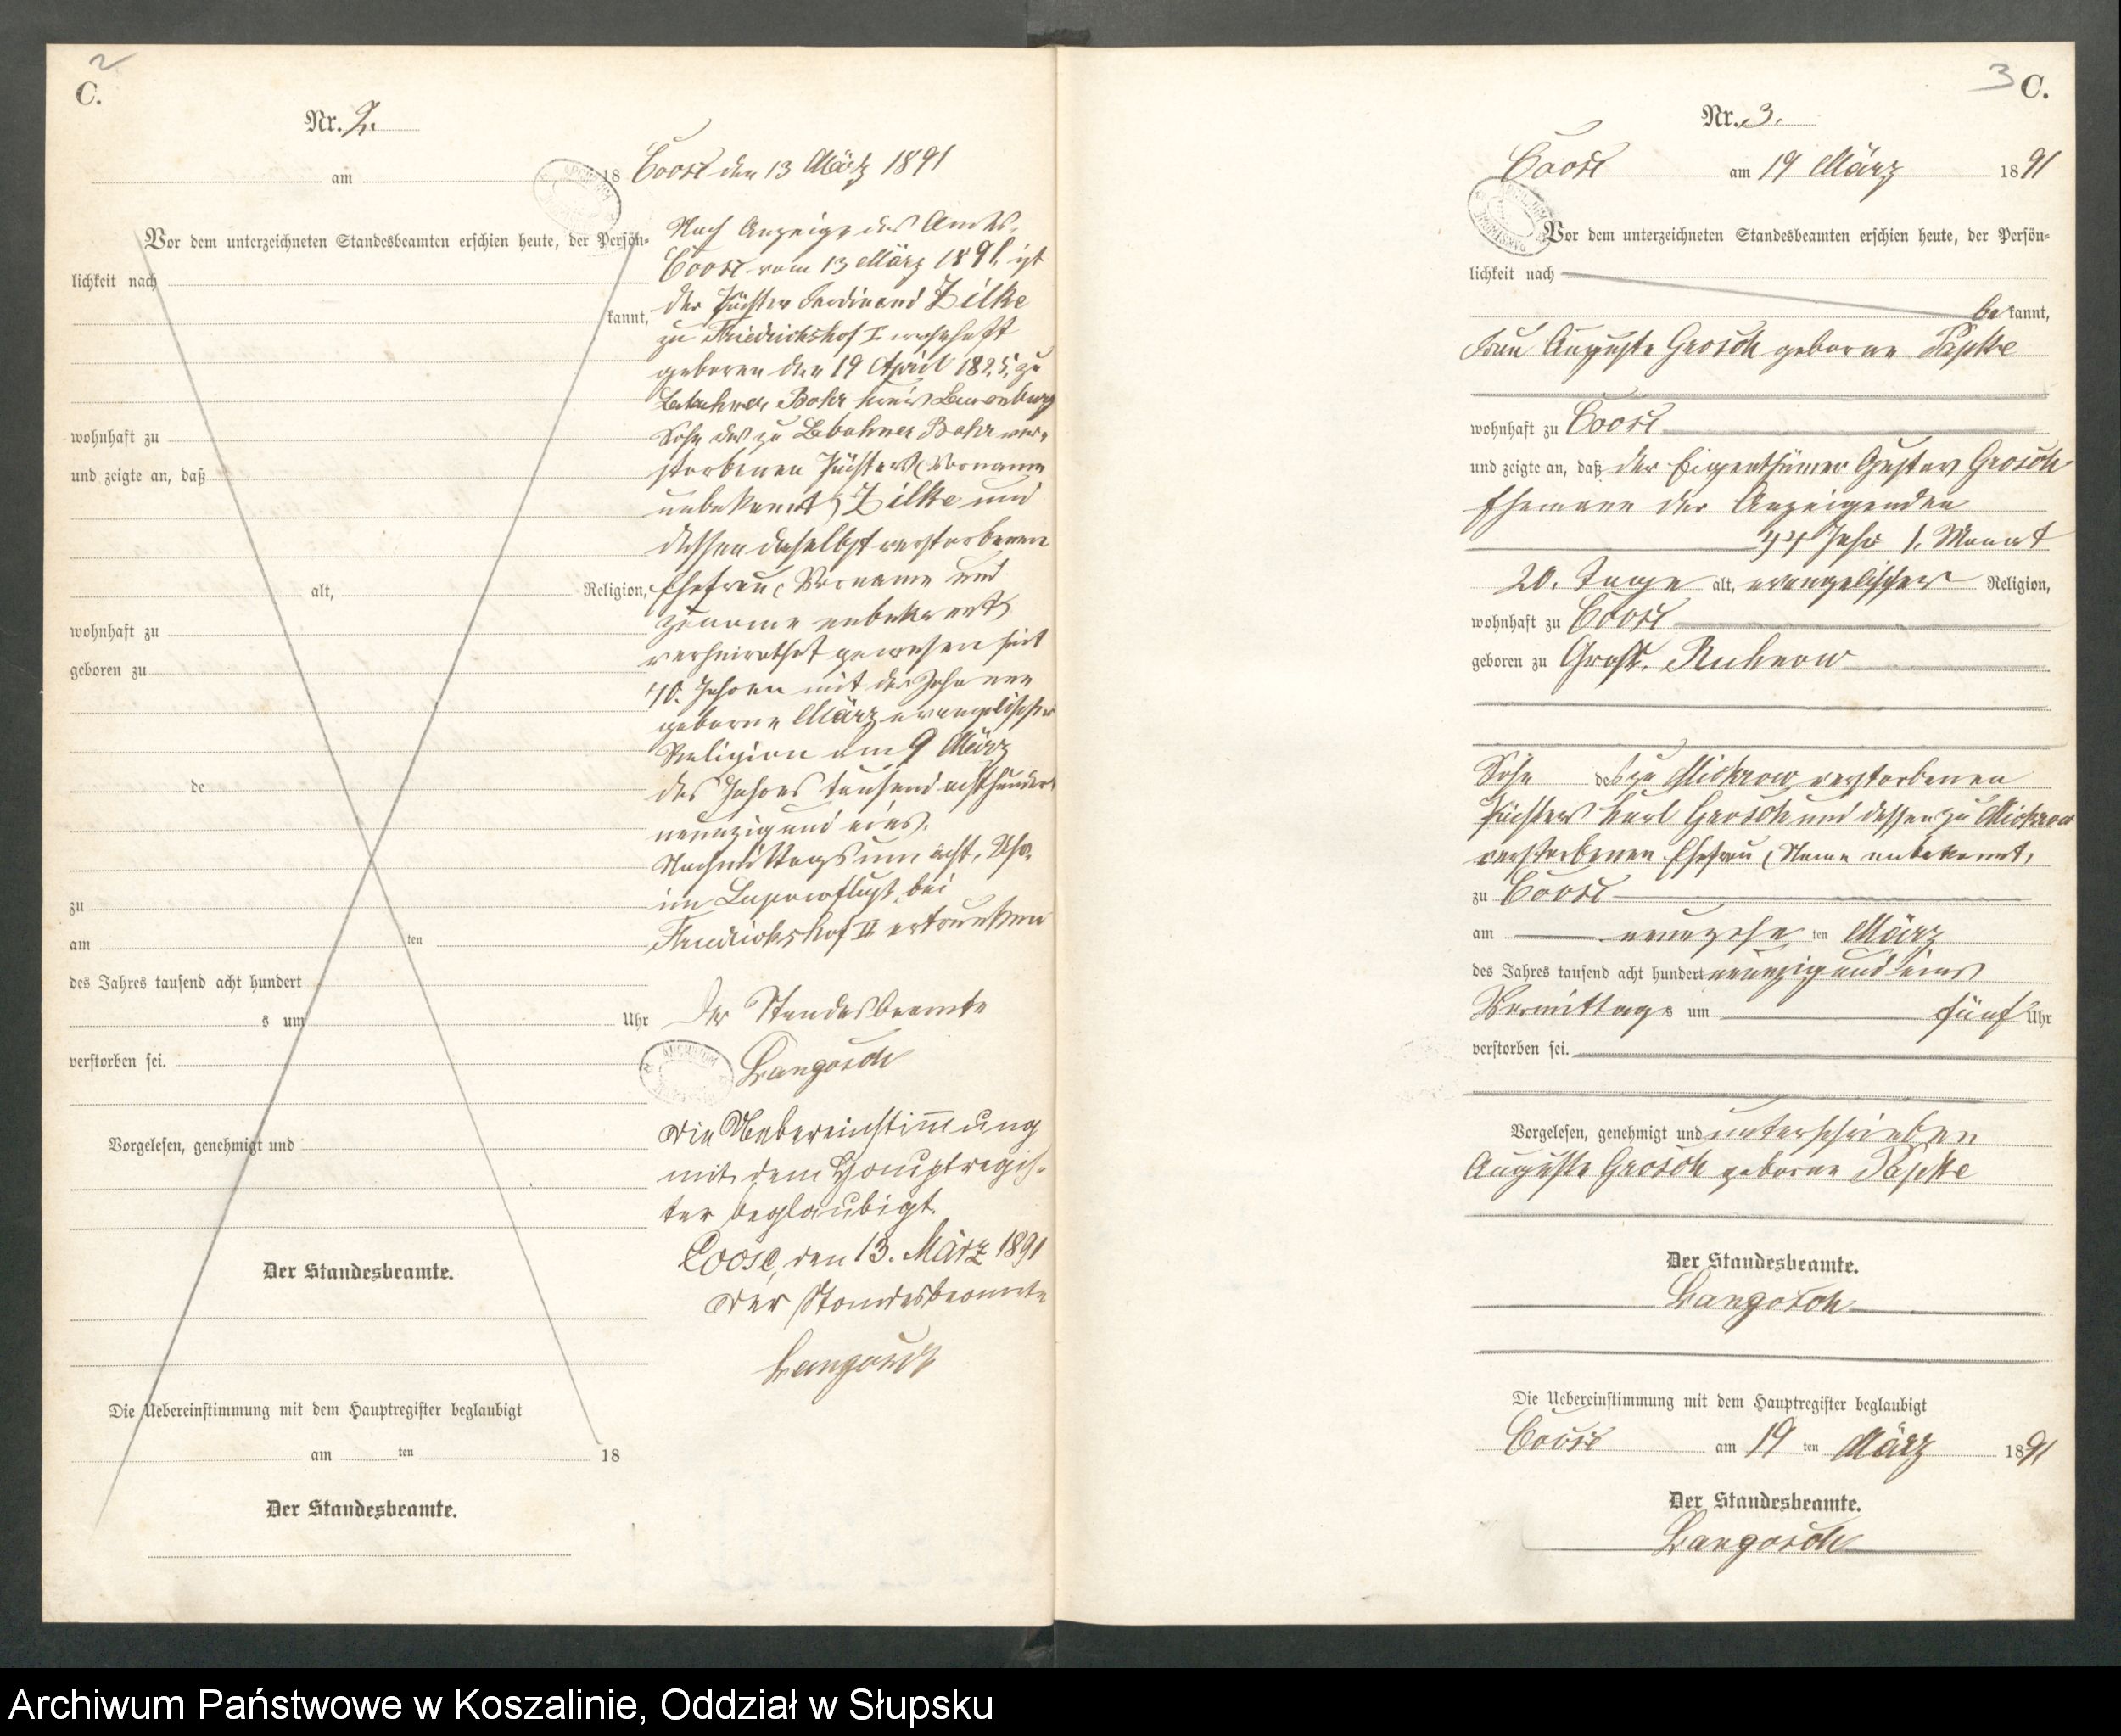 2
C.
Nr. 2.
am 18
Coose den 13 März 1891
Vor dem unterzeichneten Standesbeamten erschien heute, der Persön-
lichkeit nach
kannt,
wohnhaft zu
und zeigte an, daß
alt, Religion,
wohnhaft zu
geboren zu
de
zu
am ten
des Jahres tausend acht hundert
s um Uhr
verstorben sei.
Vorgelesen, genehmigt und
Der Standesbeamte.
Die Uebereinstimmung mit dem Hauptregister beglaubigt
am ten 18
Der Standesbeamte.
Nach Anzeige des Amtes
Coose vom 13 März 1891, ist
der Ferdinand Zilke
zu Friedrichshof I wohnhaft
geboren den 19 April 1825, zu
Bohr Kreis Lauenburg
Sohn des zu Bohr ver-
storbenen (Vorname
unbekannt) Zilke und
dessen daselbst verstorbenen
Ehefrau (Vorname und
Zuname unbekannt)
verheirathet gewesen seit
40. Jahren mit der Johanne
geborne März evangelischer
Religion am 9 März
des Jahres tausend achthundert
neunzig und eins.
Nachmittags um acht, Uhr,
im Lupowfluß, bei
Friedrichshof II ertrunken
Der Standesbeamte
Langosch
Die Uebereinstimmung
mit dem Hauptregis-
ter beglaubigt.
Coose, den 13. März 1891
Der Standesbeamte
Langosch
3 C.
Nr. 3.
Coose am 19 März 1891
Vor dem unterzeichneten Standesbeamten erschien heute, der Persön-
lichkeit nach
be kannt,
Frau Auguste Grosch geborne Papke
wohnhaft zu Coose
und zeigte an, daß der Eigenthümer Gustav Grosch
Ehemann der Anzeigenden
44 Jahr 1. Monat
20. Tage alt, evangelischer Religion,
wohnhaft zu Coose
geboren zu Groß. Ruhnow
Sohn des zu Mickrow verstorbenen
Karl Grosch und dessen zu Mickrow
verstorbenen Ehefrau (Name unbekannt,
zu Coose
am neunzehn ten März
des Jahres tausend acht hundert neunzig und eins
Vormittags um fünf Uhr
verstorben sei.
Vorgelesen, genehmigt und unterschrieben
Auguste Grosch geborne Papke
Der Standesbeamte.
Langosch
Die Uebereinstimmung mit dem Hauptregister beglaubigt
Coose am 19 ten März 1891
Der Standesbeamte.
Langosch
Archiwum Państwowe w Koszalinie, Oddział w Słupsku